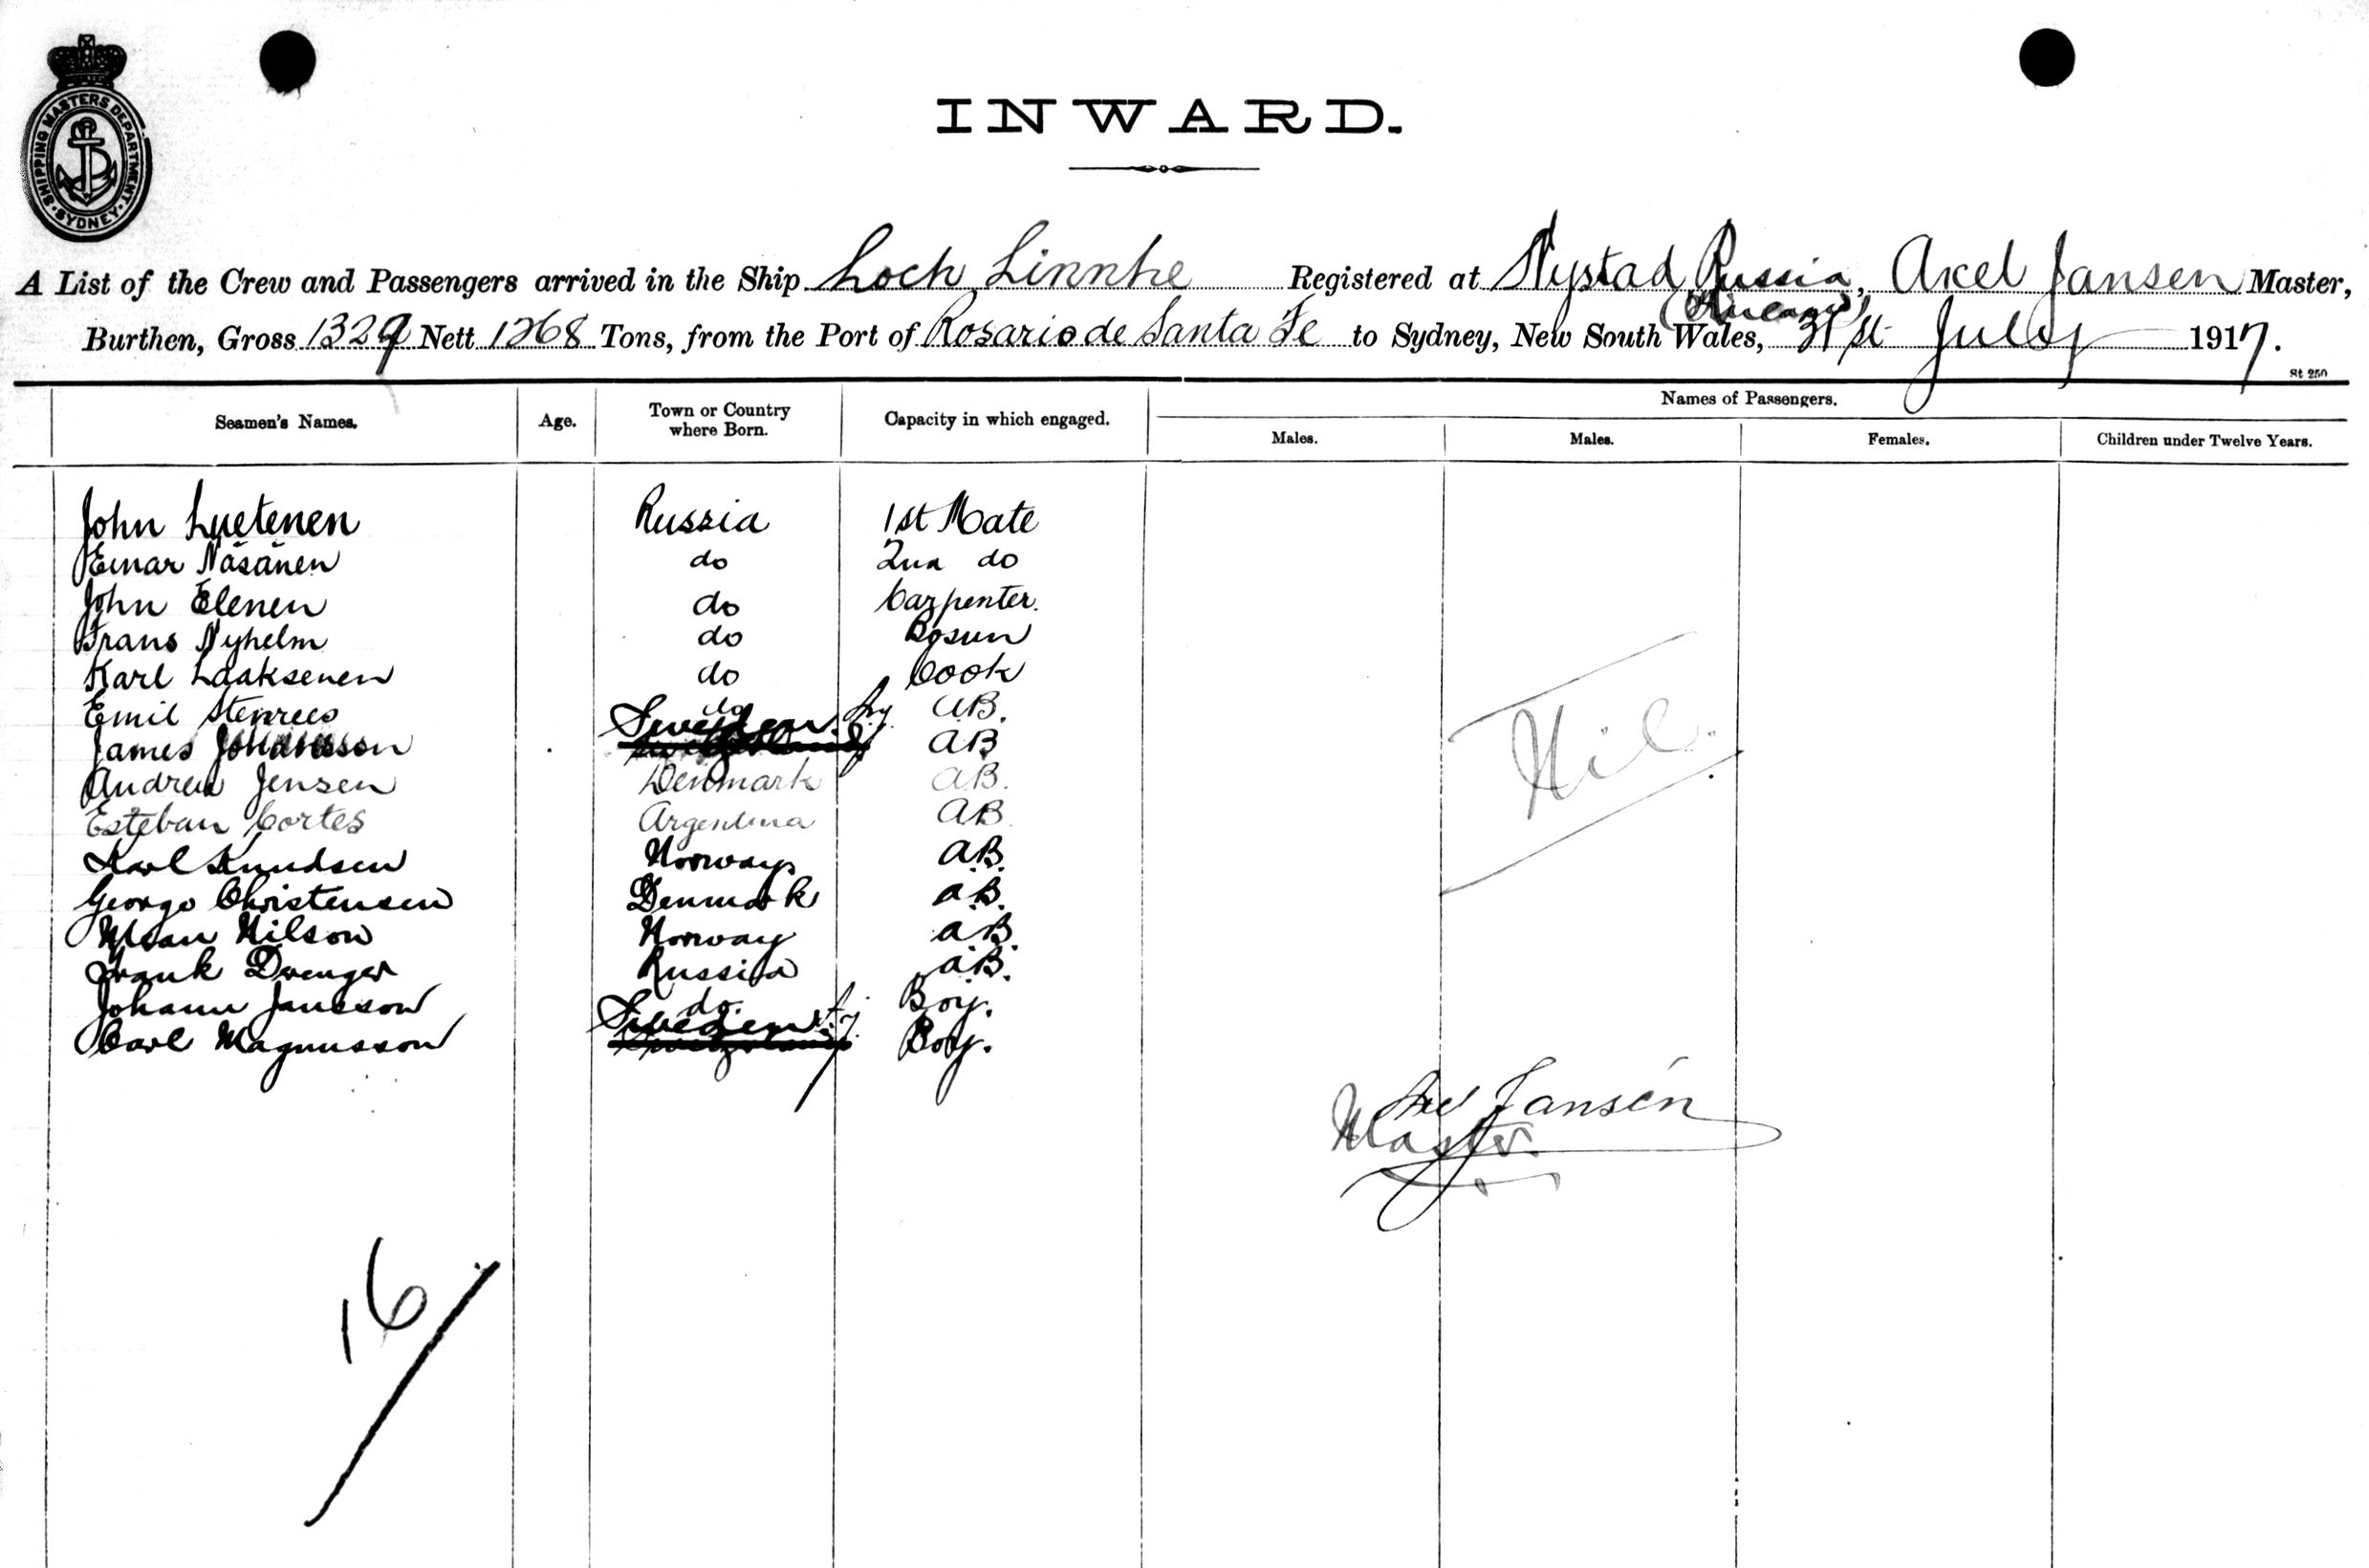 SHIPPING MASTERS DEPARTMENT
SYDNEY
INWARD.
A List of the Crew and Passengers arrived in the Ship Loch Linnhe Registered at Nystad Russia, Axel Jansen Master,
Burthen, Gross 1329 Nett 1268 Tons, from the Port of Rosario de Santa Fe to Sydney, New South Wales, 31st July 1917.
St 250
Seamen's Names. Age. Town or Country where Born. Capacity in which engaged. Names of Passengers.
Males. Males. Females. Children under Twelve Years.
John Luetenen Russia 1st Mate
Einar Näsänen do 2nd do
John Elenen do Carpenter.
Frans Nyhelm do Bosun
Karl Laaksenen do Cook
Emil do AB.
James Johansson Sweden. AB
Andrew Jensen Denmark AB.
Esteban Cortes Argentina AB.
Karl Knudsen Norway AB.
George Christensen Denmark AB.
Nilson Norway AB.
Frank Drenger Russia AB.
Johann Jansson do. Boy.
Carl Magnusson Sweden Boy.
Nil.
Jansén
Master.
16